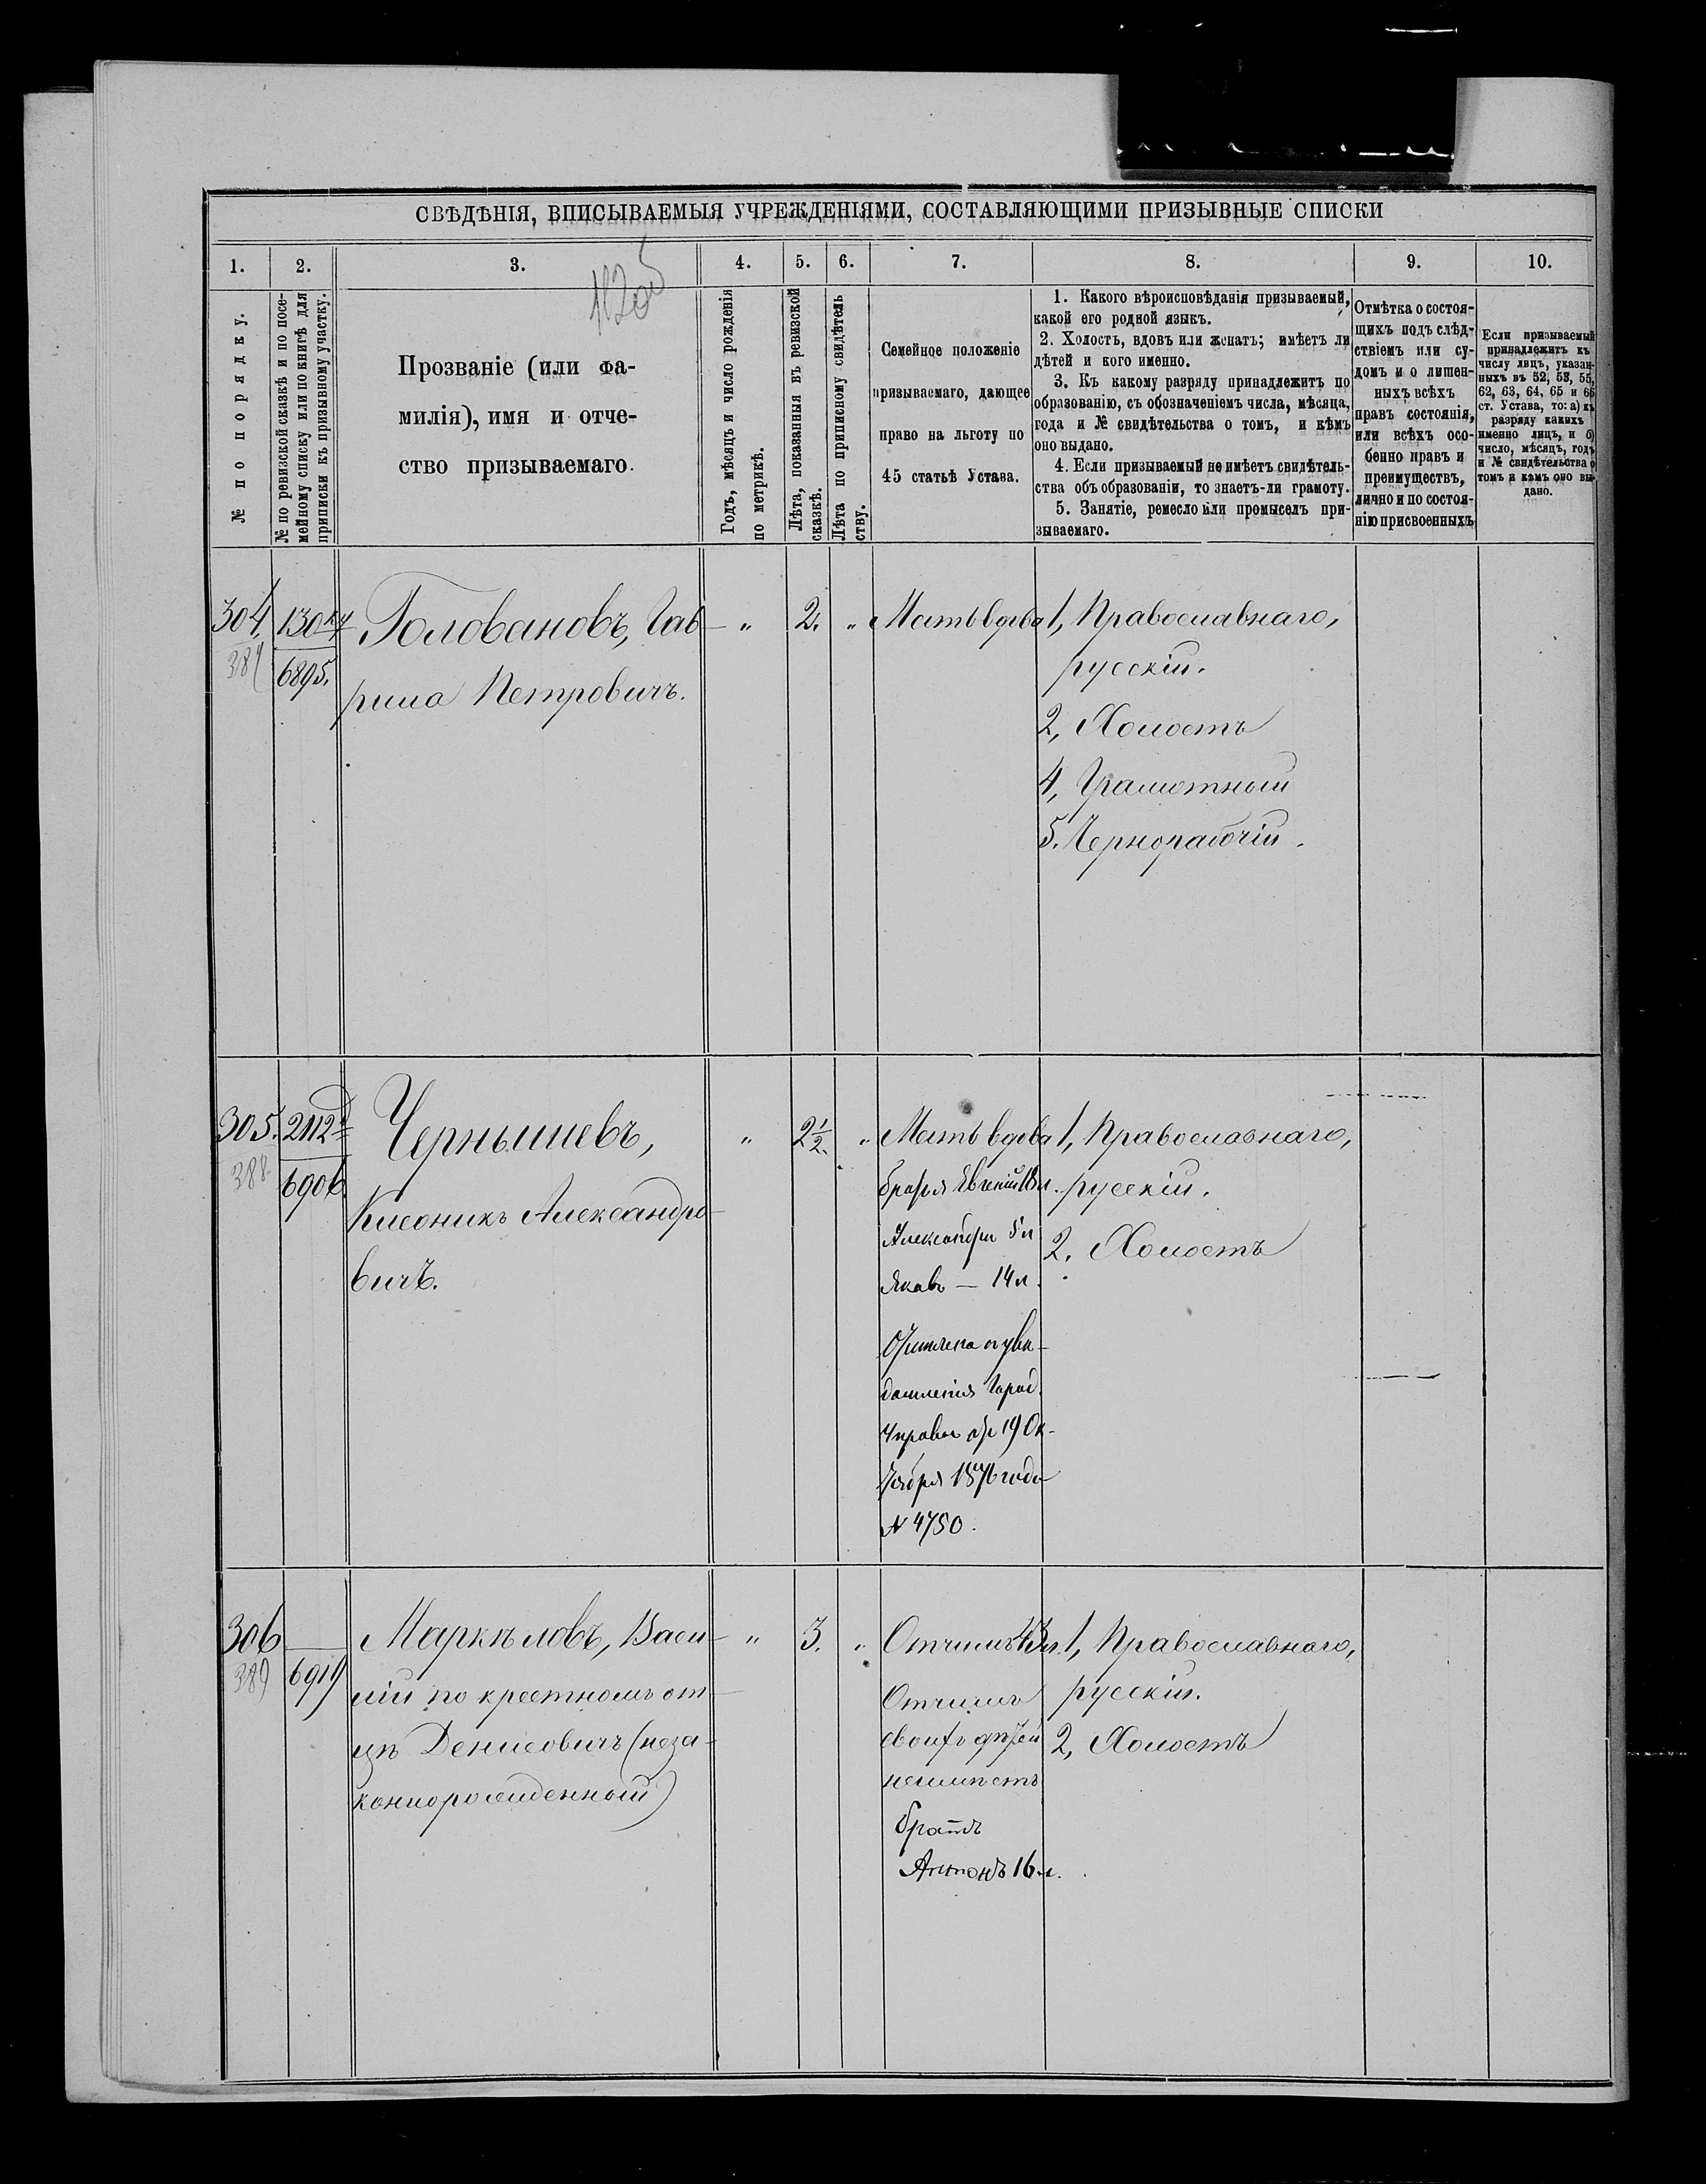 СВѢДѢНІЯ, ВПИСЫВАЕМЫЯ УЧРЕЖДЕНІЯМИ, СОСТАВЛЯЮЩИМИ ПРИЗЫВНЫЕ СПИСКИ
1.
2.
3.
4.
5.
6.
7.
8.
9.
10.
№ по порядку.
№ по ревизской сказкѣ и по посе-
мейному списку или по книгѣ для
приписки къ призывному участку.
Прозваніе (или фа-
милія), имя и отче-
ство призываемаго.
Годъ, мѣсяцъ и число рожденія
по метрикѣ.
Лѣта, показанныя въ ревизской
сказкѣ.
Лѣта по приписному свидѣтель
ству.
Семейное положеніе
призываемаго, дающее
право на льготу по
45 статьѣ Устава.
1. Какого вѣроисповѣданія призываемый,
какой его родной языкъ.
2. Холостъ, вдовъ или женатъ; имѣетъ ли
дѣтей и кого именно.
3. Къ какому разряду принадлежитъ по
образованію, съ обозначеніемъ числа, мѣсяца,
года и № свидѣтельства о томъ, и кѣмъ
оно выдано.
4. Если призываемый не имѣетъ свидѣтель-
ства объ образованіи, то знаетъ-ли грамоту.
5. Занятіе, ремесло или промыселъ при-
зываемаго.
Отмѣтка о состоя-
щихъ подъ слѣд-
ствіемъ или су-
домъ и о лишен-
ныхъ всѣхъ
правъ состоянія,
или всѣхъ осо-
бенно правъ и
преимуществъ,
лично и по состоя-
нію присвоенныхъ
Если призываемый
принадлежитъ къ
числу лицъ, указан-
ныхъ въ 52, 53, 55,
62, 63, 64, 65 и 66
ст. Устава, то: а) къ
разряду какихъ
именно лицъ, и б)
число, мѣсяцъ, годъ
и № свидѣтельства о
томъ и кѣмъ оно вы-
дано.
304.
6895.
Головановъ, Гав-
рила Петровичъ.
"
2.
"
Мать вдова
1, Православнаго,
русскій.
2, Холостъ
4, Грамотный
5. Чернорабочій.
305.
388
6906
Чернышевъ,
Александро-
вичъ.
"
2 1/2.
"
Мать вдова
братья Евгеній 18 л.
Александръ
Яковъ — 14 л.
Отмѣтка по увѣ-
домленію Город.
Управы отъ 19 Ок-
тября 1876 года
№ 4750.
1, Православнаго,
русскій.
2. Холостъ
306
389
Маркѣловъ, Васи-
лій по крестному от-
цѣ Денисовичъ (неза-
коннорожденный)
"
3.
"
Отчимъ 43 л.
Отчимъ
своихъ дѣтей
неимѣетъ
братъ
Антонъ 16 л.
1, Православнаго,
русскій.
2, Холостъ